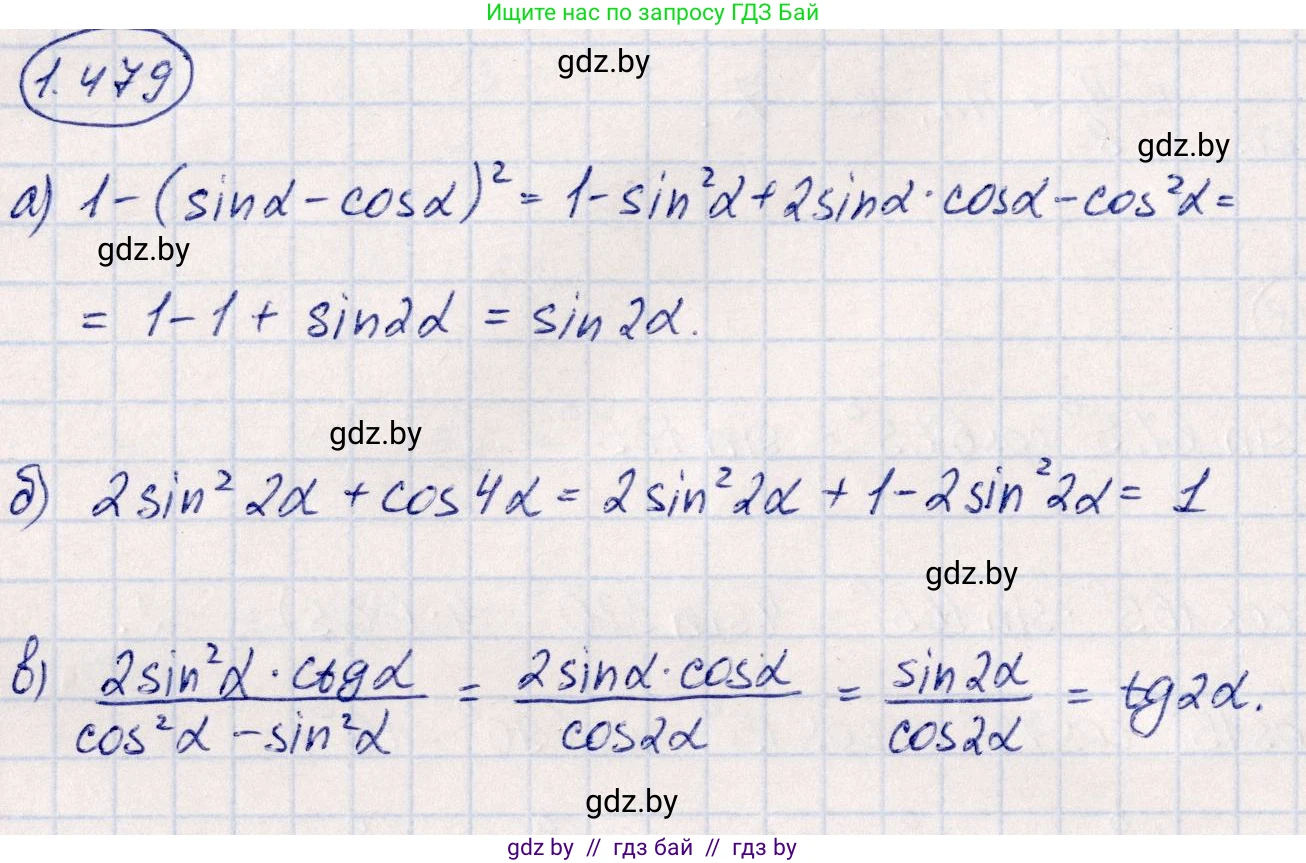 Ищите нас по запросу ГДЗ Бай
1.479
gdz.by
gdz.by
а) 1-(sinα-cosα)² = 1-sin²α+2sinα·cosα-cos²α=
gdz.by
= 1-1+ sin2α = sin2α.
gdz.by
б) 2sin² 2α + cos4α = 2sin²2α + 1-2sin²2α = 1
gdz.by
в) (2sin²α · ctgα)/(cos²α - sin²α) = (2sinα·cosα)/(cos2α) = (sin2α)/(cos2α) = tg2α.
gdz.by
gdz.by // гдз бай // гдз by